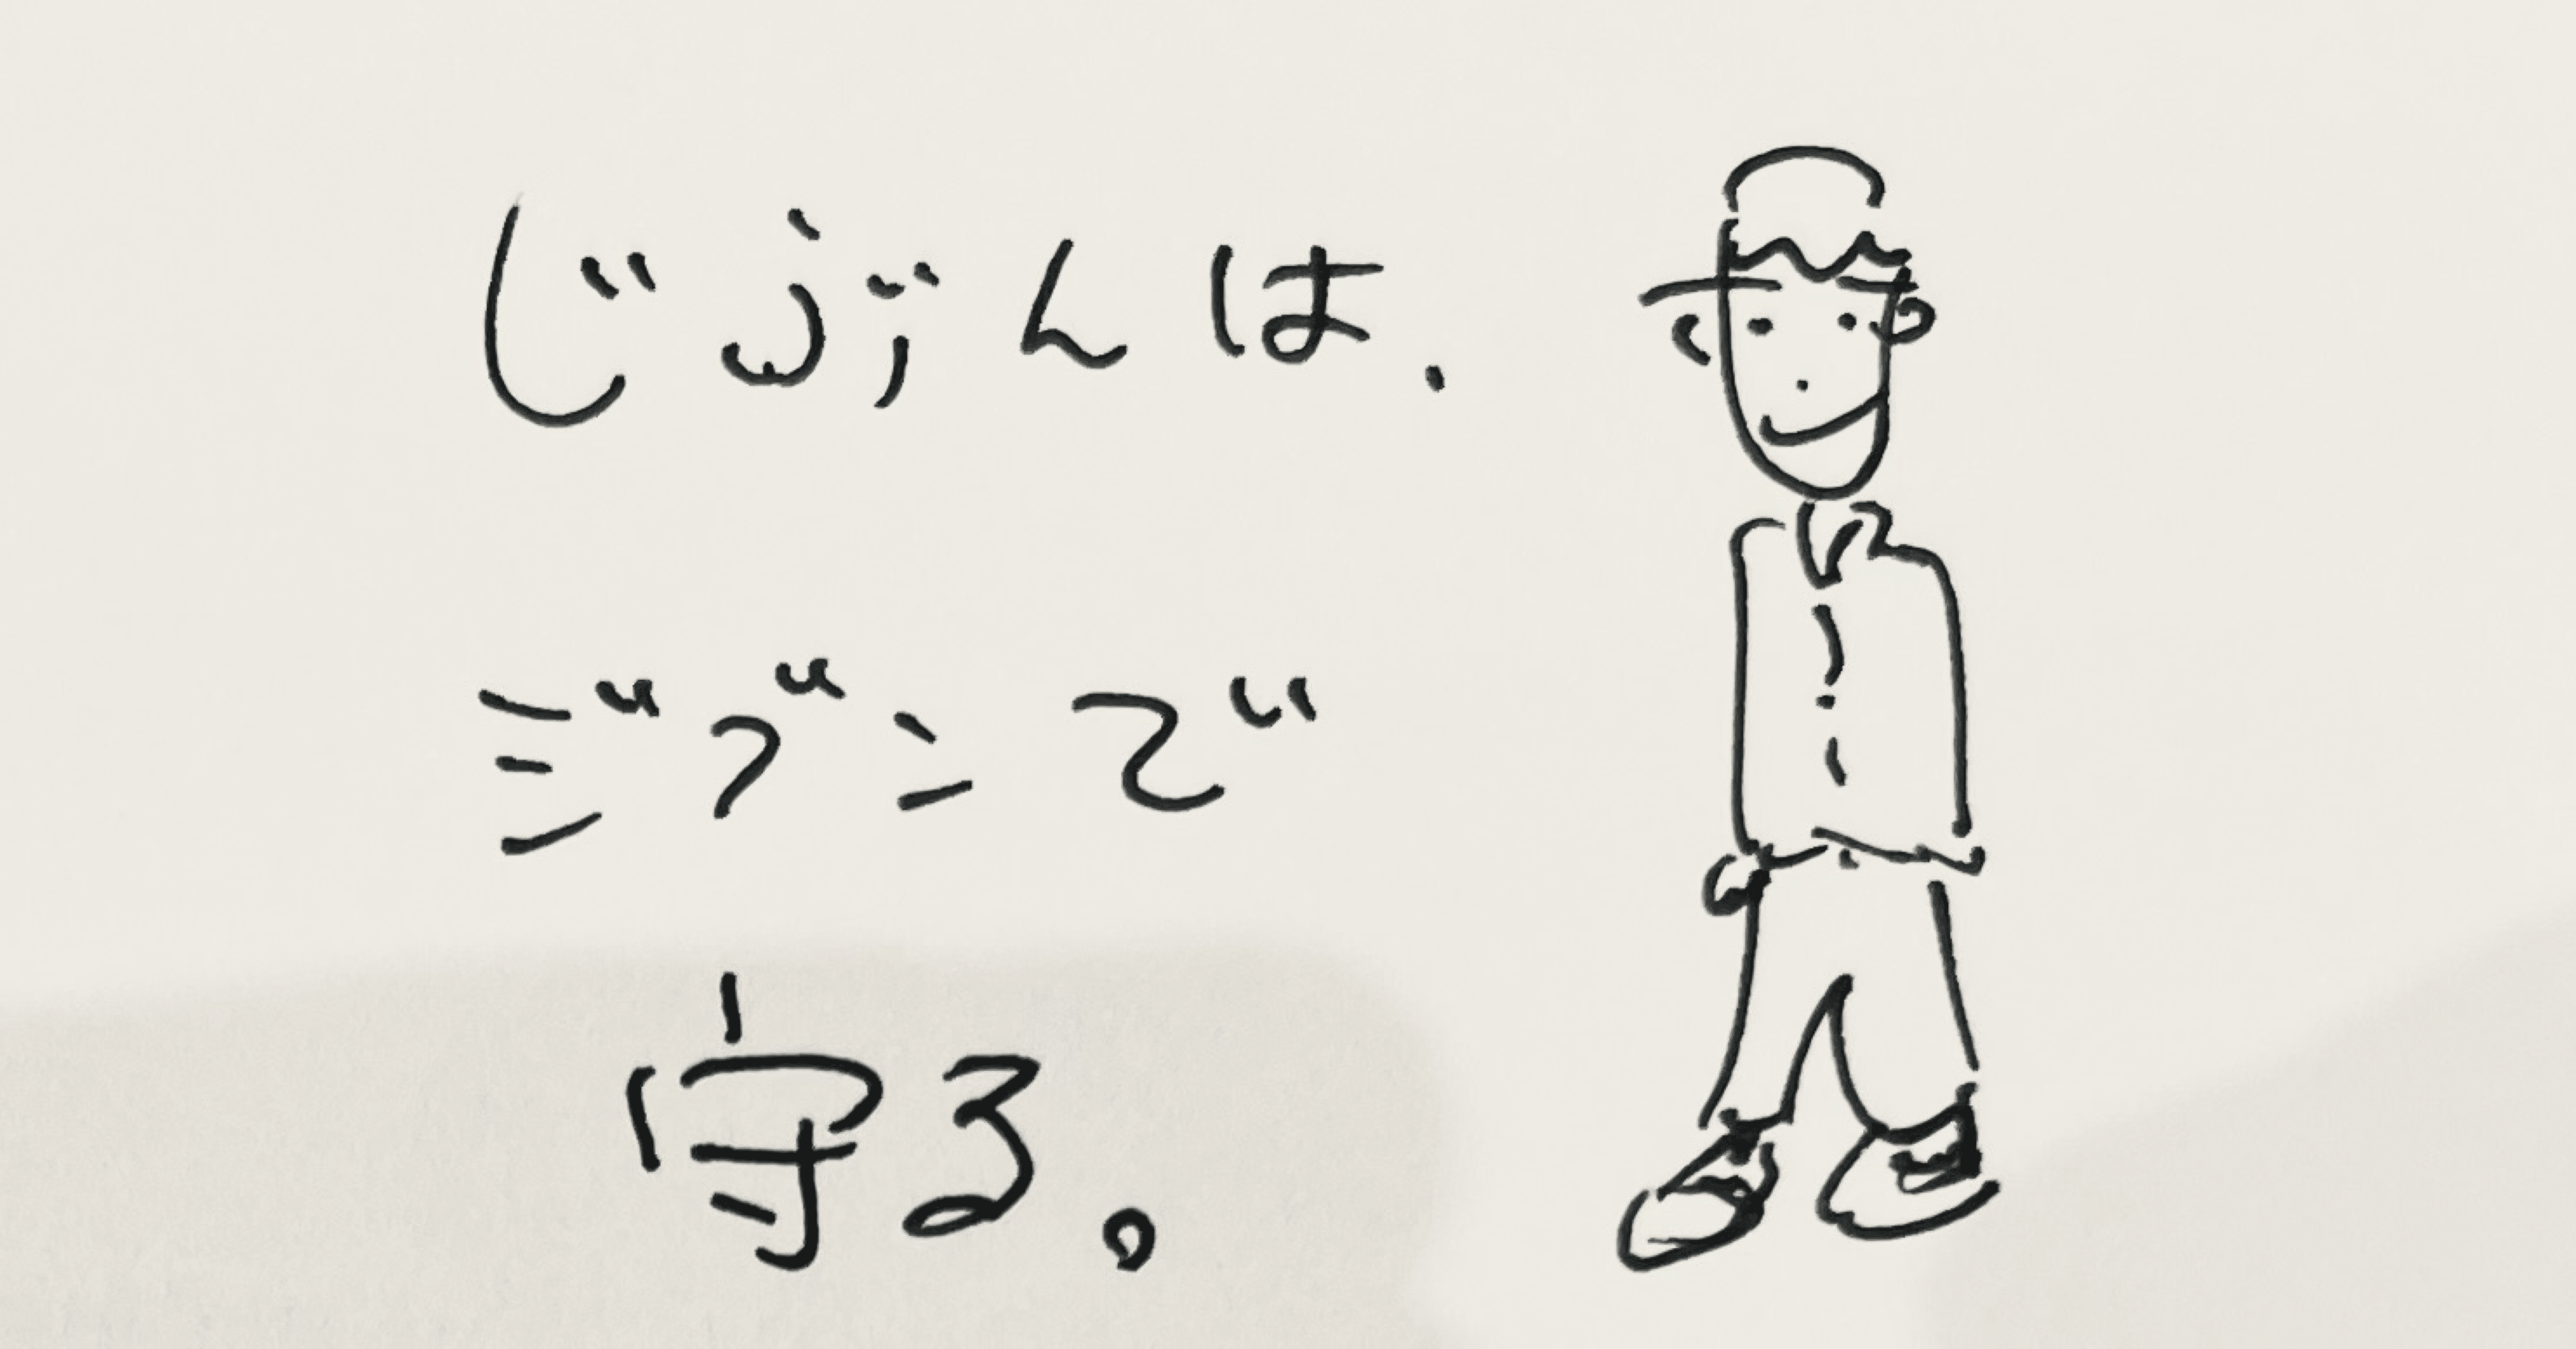 じぶんは.
ジブンで
守る。